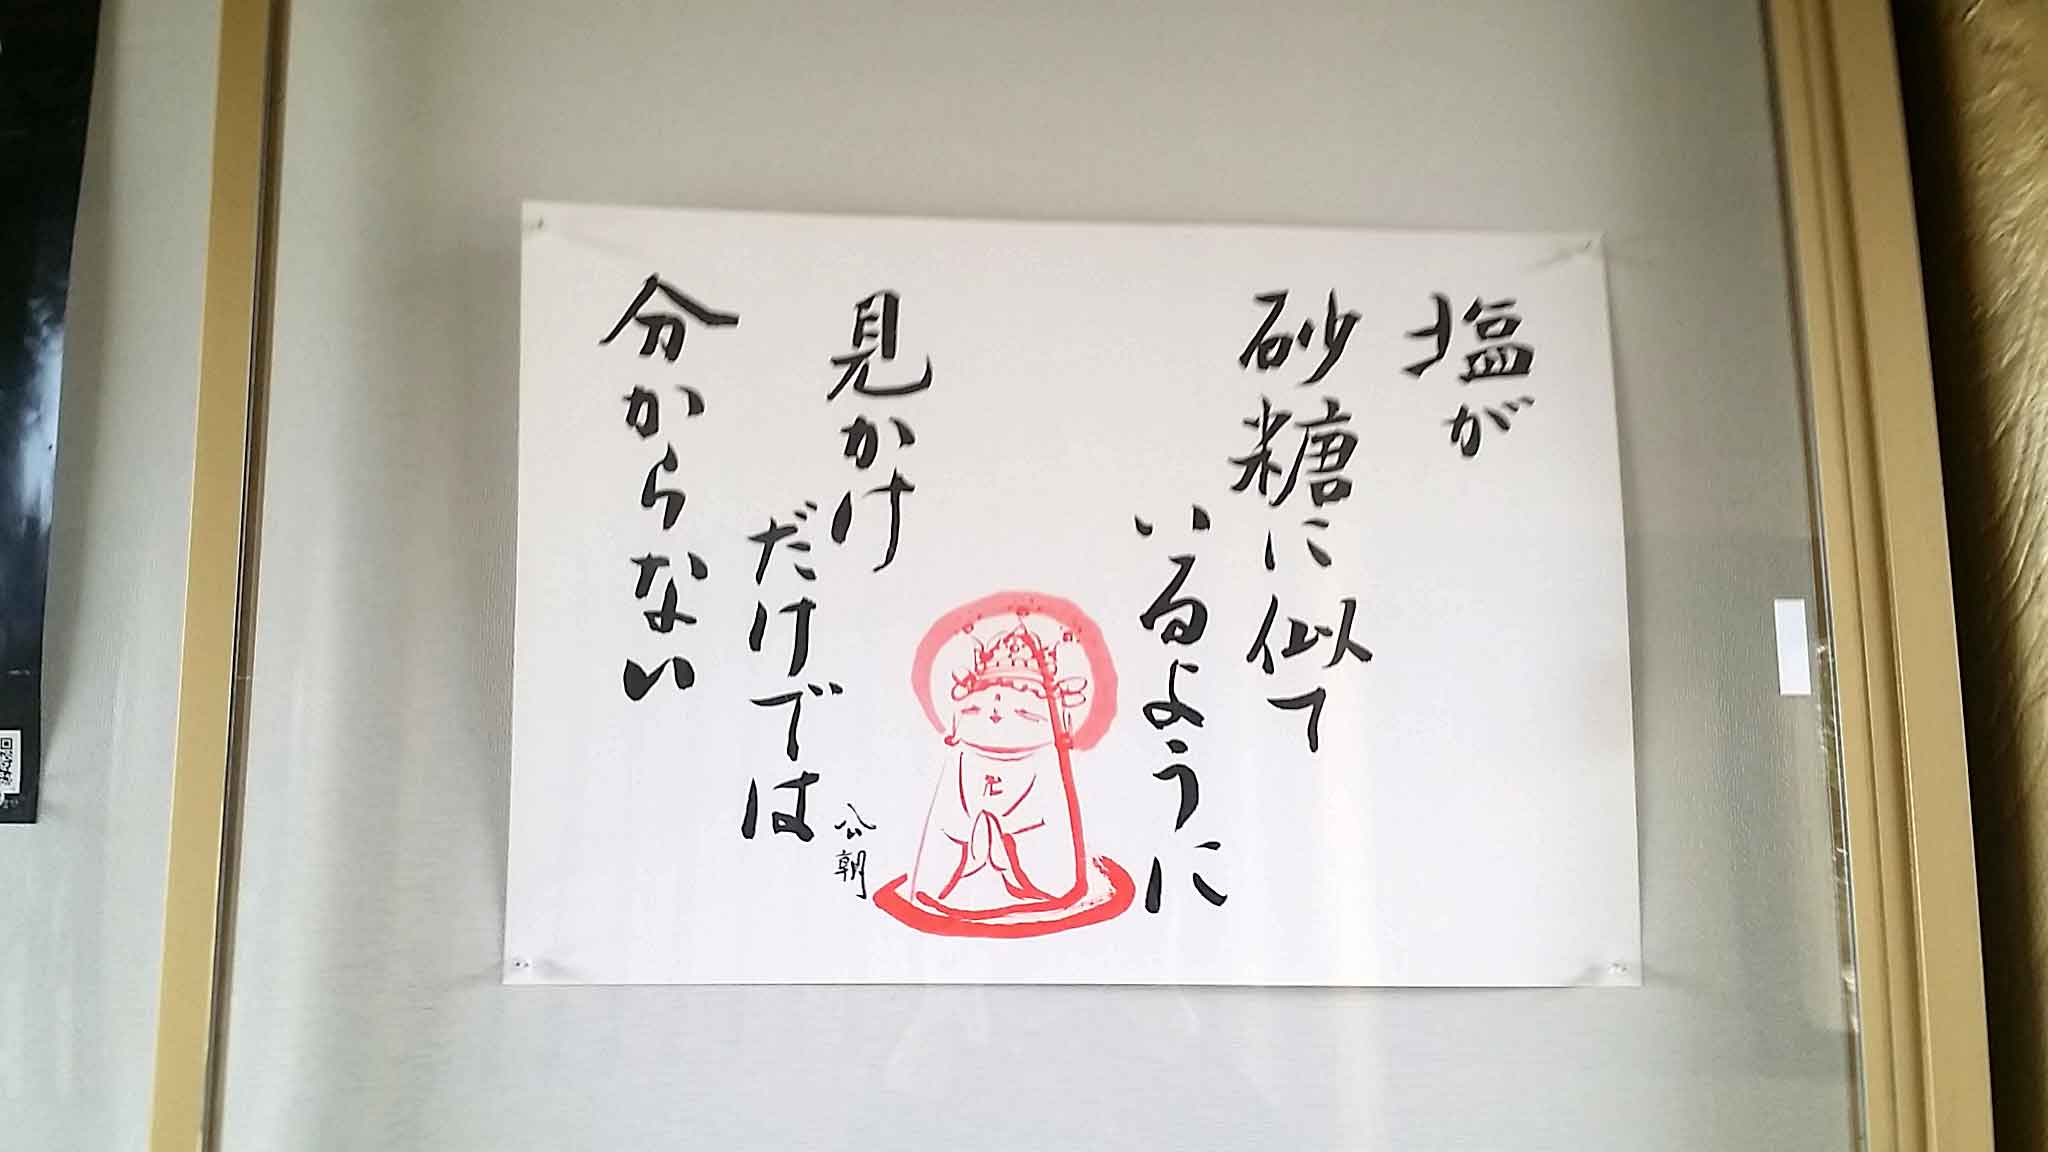 塩が
砂糖に似て
いるように
見かけ
だけでは
分からない
公朝
卍